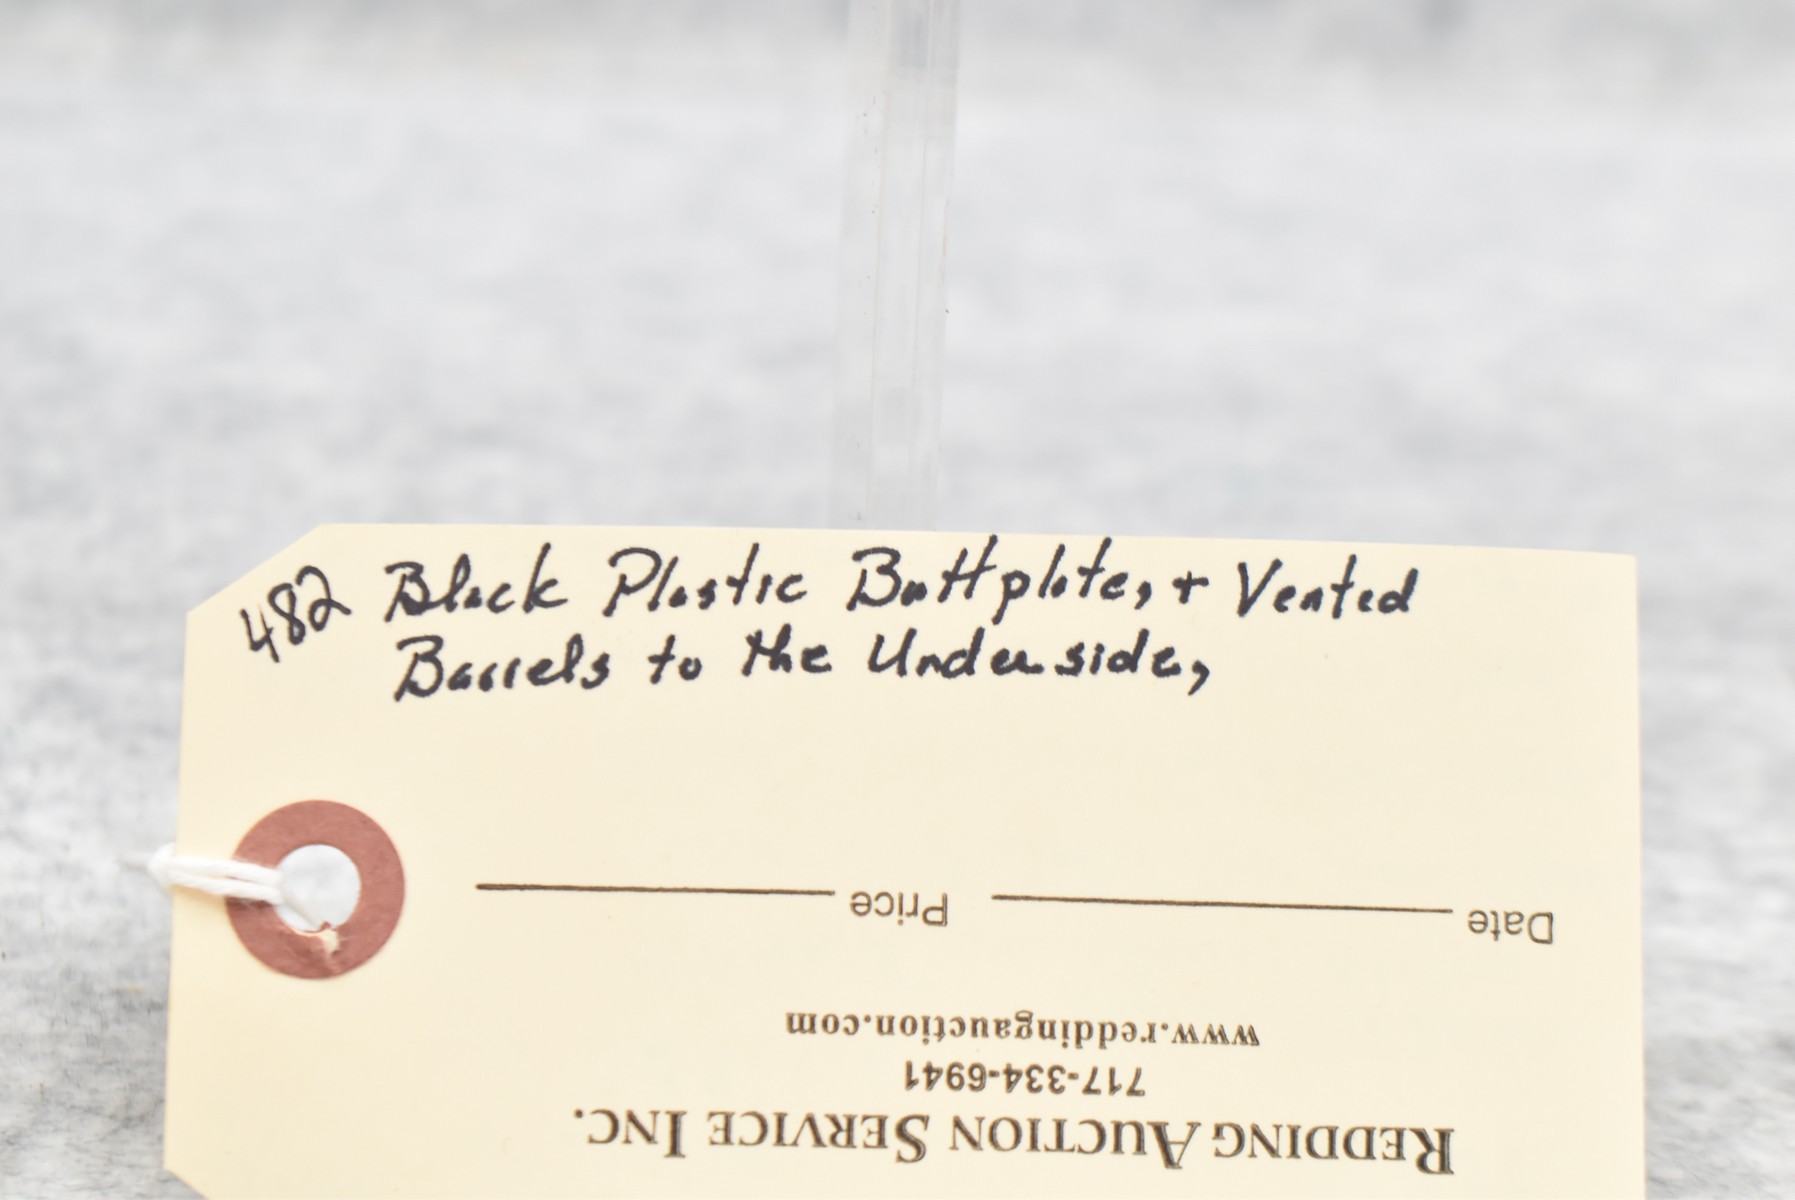 482 Black Plastic Buttplate, + Vented
Barrels to the Underside,
REDDING AUCTION SERVICE INC.
717-334-6941
www.reddingauction.com
Date Price